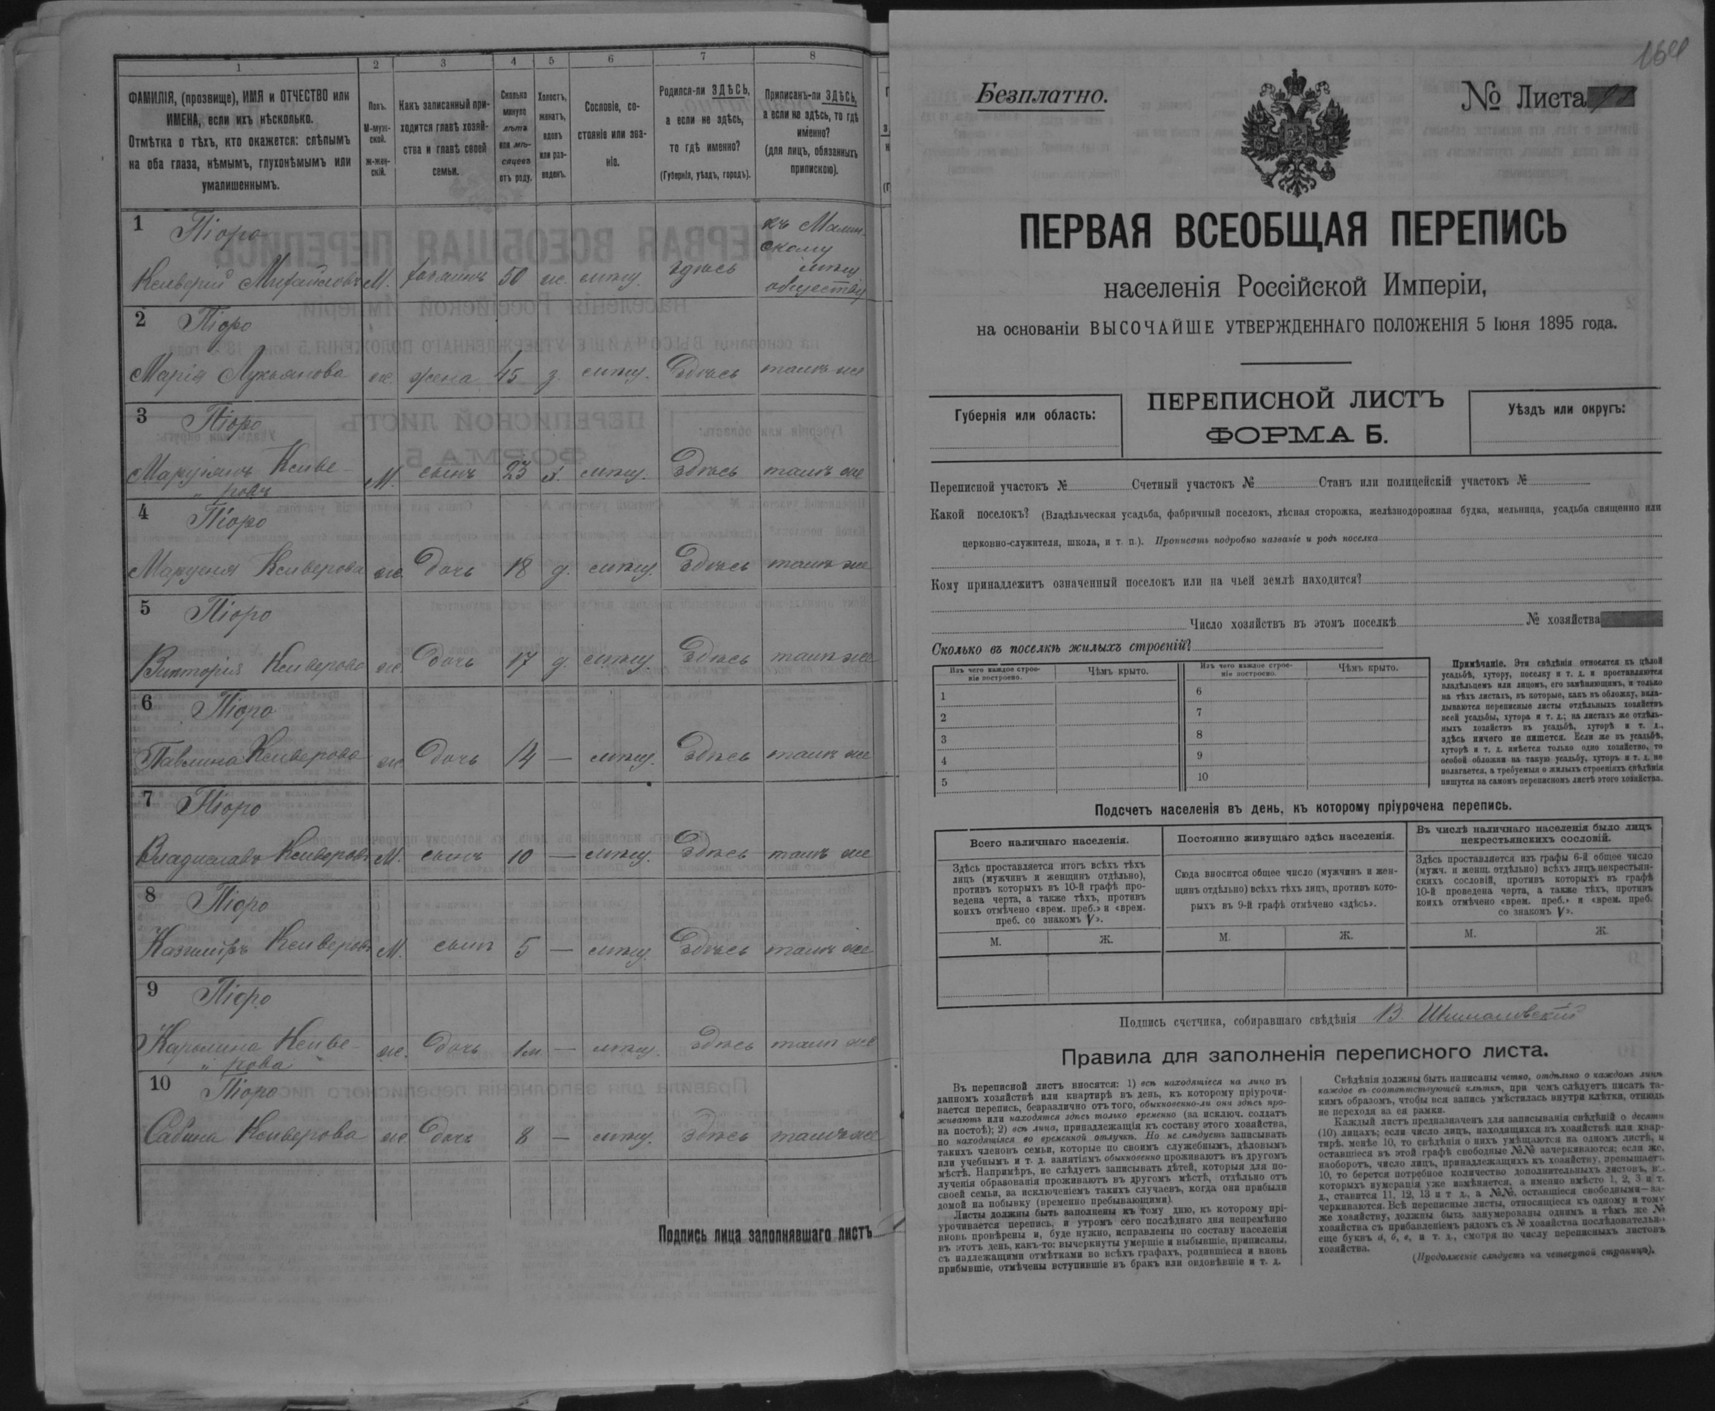 1
2
3
4
5
6
7
8
ФАМИЛІЯ, (прозвище), ИМЯ и ОТЧЕСТВО или
ИМЕНА, если ихъ нѣсколько.
Отмѣтка о тѣхъ, кто окажется: слѣпымъ
на оба глаза, нѣмымъ, глухонѣмымъ или
умалишеннымъ.
Полъ.
М-муж-
ской.
ж-жен-
скій.
Какъ записанный при-
ходится главѣ хозяй-
ства и главѣ своей
семьи.
Сколько
минуло
лѣтъ
или мѣ-
сяцевъ
отъ роду.
Холостъ,
женатъ,
вдовъ
или раз-
веденъ.
Сословіе, со-
стояніе или зва-
ніе.
Родился-ли ЗДѢСЬ,
а если не здѣсь,
то гдѣ именно?
(Губернія, уѣздъ, городъ).
Приписанъ-ли ЗДѢСЬ,
а если не здѣсь, то гдѣ
именно?
(для лицъ, обязанныхъ
припискою).
1 Піоро
Ксаверій М. хозяинъ 50 ж. мѣщ. здѣсь
обществу
2 Піоро
Марія Лукьянова ж. жена 45 з. мѣщ. Здѣсь тамъ же
3 Піоро
М. сынъ 23 х. мѣщ. Здѣсь тамъ же
4 Піоро
Ксаверова ж. Дочь 18 д. мѣщ. Здѣсь тамъ же
5 Піоро
Викторія Ксаверова ж. Дочь 17 д. мѣщ. Здѣсь тамъ же
6 Піоро
Павлина Ксаверова ж. Дочь 14 — мѣщ. Здѣсь тамъ же
7 Піоро
Владиславъ Ксаверовъ М. сынъ 10 — мѣщ. Здѣсь тамъ же
8 Піоро
Казимiръ Ксаверовъ М. сынъ 5 — мѣщ. Здѣсь тамъ же
9 Піоро
Каролина Ксаве-
рова ж. Дочь 1м. — мѣщ. Здѣсь тамъ же
10 Піоро
Сабина Ксаверова ж. Дочь 8 — мѣщ. Здѣсь тамъ же
Подпись лица заполнявшаго листъ
Безплатно.
№ Листа
ПЕРВАЯ ВСЕОБЩАЯ ПЕРЕПИСЬ
населенія Россійской Имперіи,
на основаніи ВЫСОЧАЙШЕ УТВЕРЖДЕННАГО ПОЛОЖЕНІЯ 5 Іюня 1895 года.
Губернія или область:
ПЕРЕПИСНОЙ ЛИСТЪ
ФОРМА Б.
Уѣздъ или округъ:
Переписной участокъ № Счетный участокъ № Станъ или полицейскій участокъ №
Какой поселокъ? (Владѣльческая усадьба, фабричный поселокъ, лѣсная сторожка, желѣзнодорожная будка, мельница, усадьба священно или
церковно-служителя, школа, и т. п.). Прописать подробно названіе и родъ поселка
Кому принадлежитъ означенный поселокъ или на чьей землѣ находится?
Число хозяйствъ въ этомъ поселкѣ № хозяйства
Сколько въ поселкѣ жилыхъ строеній?
Изъ чего каждое строе-
ніе построено.
Чѣмъ крыто.
Изъ чего каждое строе-
ніе построено.
Чѣмъ крыто.
1
2
3
4
5
6
7
8
9
10
Примѣчаніе. Эти свѣдѣнія относятся къ цѣлой
усадьбѣ, хутору, поселку и т. д. и проставляются
владѣльцемъ или лицомъ, его замѣняющимъ, и только
на тѣхъ листахъ, въ которые, какъ въ обложку, вкла-
дываются переписные листы отдѣльныхъ хозяйствъ
всей усадьбы, хутора и т. д.; на листахъ же отдѣль-
ныхъ хозяйствъ въ усадьбѣ, хуторѣ и т. д.,
здѣсь ничего не пишется. Если же въ усадьбѣ,
хуторѣ и т. д. имѣется только одно хозяйство, то
особой обложки на такую усадьбу, хуторъ и т. д. не
полагается, а требуемыя о жилыхъ строеніяхъ свѣдѣнія
пишутся на самомъ переписномъ листѣ этого хозяйства.
Подсчетъ населенія въ день, къ которому пріурочена перепись.
Всего наличнаго населенія.
Здѣсь проставляется итогъ всѣхъ тѣхъ
лицъ (мужчинъ и женщинъ отдѣльно),
противъ которыхъ въ 10-й графѣ про-
ведена черта, а также тѣхъ, противъ
коихъ отмѣчено «врем. преб.» и «врем.
преб. со знакомъ V».
Постоянно живущаго здѣсь населенія.
Сюда вносится общее число (мужчинъ и жен-
щинъ отдѣльно) всѣхъ тѣхъ лицъ, противъ кото-
рыхъ въ 9-й графѣ отмѣчено «здѣсь».
Въ числѣ наличнаго населенія было лицъ
некрестьянскихъ сословій.
Здѣсь проставляется изъ графы 6-й общее число
(мужч. и женщ. отдѣльно) всѣхъ лицъ некрестьян-
скихъ сословій, противъ которыхъ въ графѣ
10-й проведена черта, а также тѣхъ, противъ
коихъ отмѣчено «врем. преб.» и «врем. преб.
со знакомъ V».
М. Ж. М. Ж. М. Ж.
Подпись счетчика, собиравшаго свѣдѣнія В.
Правила для заполненія переписного листа.
Въ переписной листъ вносятся: 1) всѣ находящіеся на лицо въ
данномъ хозяйствѣ или квартирѣ въ день, къ которому пріурочи-
вается перепись, безразлично отъ того, обыкновенно-ли они здѣсь про-
живаютъ или находятся здѣсь только временно (за исключ. солдатъ
на постоѣ); 2) всѣ лица, принадлежащія къ составу этого хозяйства,
но находящіяся во временной отлучкѣ. Но не слѣдуетъ записывать
такихъ членовъ семьи, которые по своимъ служебнымъ, дѣловымъ
или учебнымъ и т. д. занятіямъ обыкновенно проживаютъ въ другомъ
мѣстѣ. Напримѣръ, не слѣдуетъ записывать дѣтей, которыя для по-
лученія образованія проживаютъ въ другомъ мѣстѣ, отдѣльно отъ
своей семьи, за исключеніемъ такихъ случаевъ, когда они прибыли
домой на побывку (временно пребывающими).
Листы должны быть заполнены къ тому дню, къ которому прі-
урочивается перепись, и утромъ сего послѣдняго дня непремѣнно
вновь провѣрены и, буде нужно, исправлены по составу населенія
въ этотъ день, какъ-то: вычеркнуты умершіе и выбывшіе, приписаны,
съ надлежащими отмѣтками во всѣхъ графахъ, родившіеся и вновь
прибывшіе, отмѣчены вступившіе въ бракъ или овдовѣвшіе и т. д.
Свѣдѣнія должны быть написаны четко, отдѣльно о каждомъ лицѣ
каждое въ соотвѣтствующей клѣткѣ, при чемъ слѣдуетъ писать та-
кимъ образомъ, чтобы вся запись умѣстилась внутри клѣтки, отнюдь
не переходя за ея рамки.
Каждый листъ предназначенъ для записыванія свѣдѣній о десяти
(10) лицахъ; если число лицъ, находящихся въ хозяйствѣ или квар-
тирѣ, менѣе 10, то свѣдѣнія о нихъ умѣщаются на одномъ листѣ, и
оставшіеся въ этой графѣ свободные №№ зачеркиваются; если же,
наоборотъ, число лицъ, принадлежащихъ къ хозяйству, превышаетъ
10, то берется потребное количество дополнительныхъ листовъ, въ
которыхъ нумерація уже измѣняется, а именно вмѣсто 1, 2, 3 и т.
д., ставится 11, 12, 13 и т. д., а №№, оставшіеся свободными—за-
черкиваются. Всѣ переписные листы, относящіеся къ одному и тому
же хозяйству, должны быть занумерованы однимъ и тѣмъ же №
хозяйства съ прибавленіемъ рядомъ съ № хозяйства послѣдователь-
еще буквъ а, б, в, и т. д., смотря по числу переписныхъ листовъ
хозяйства.
(Продолженіе слѣдуетъ на четвертой страницѣ).